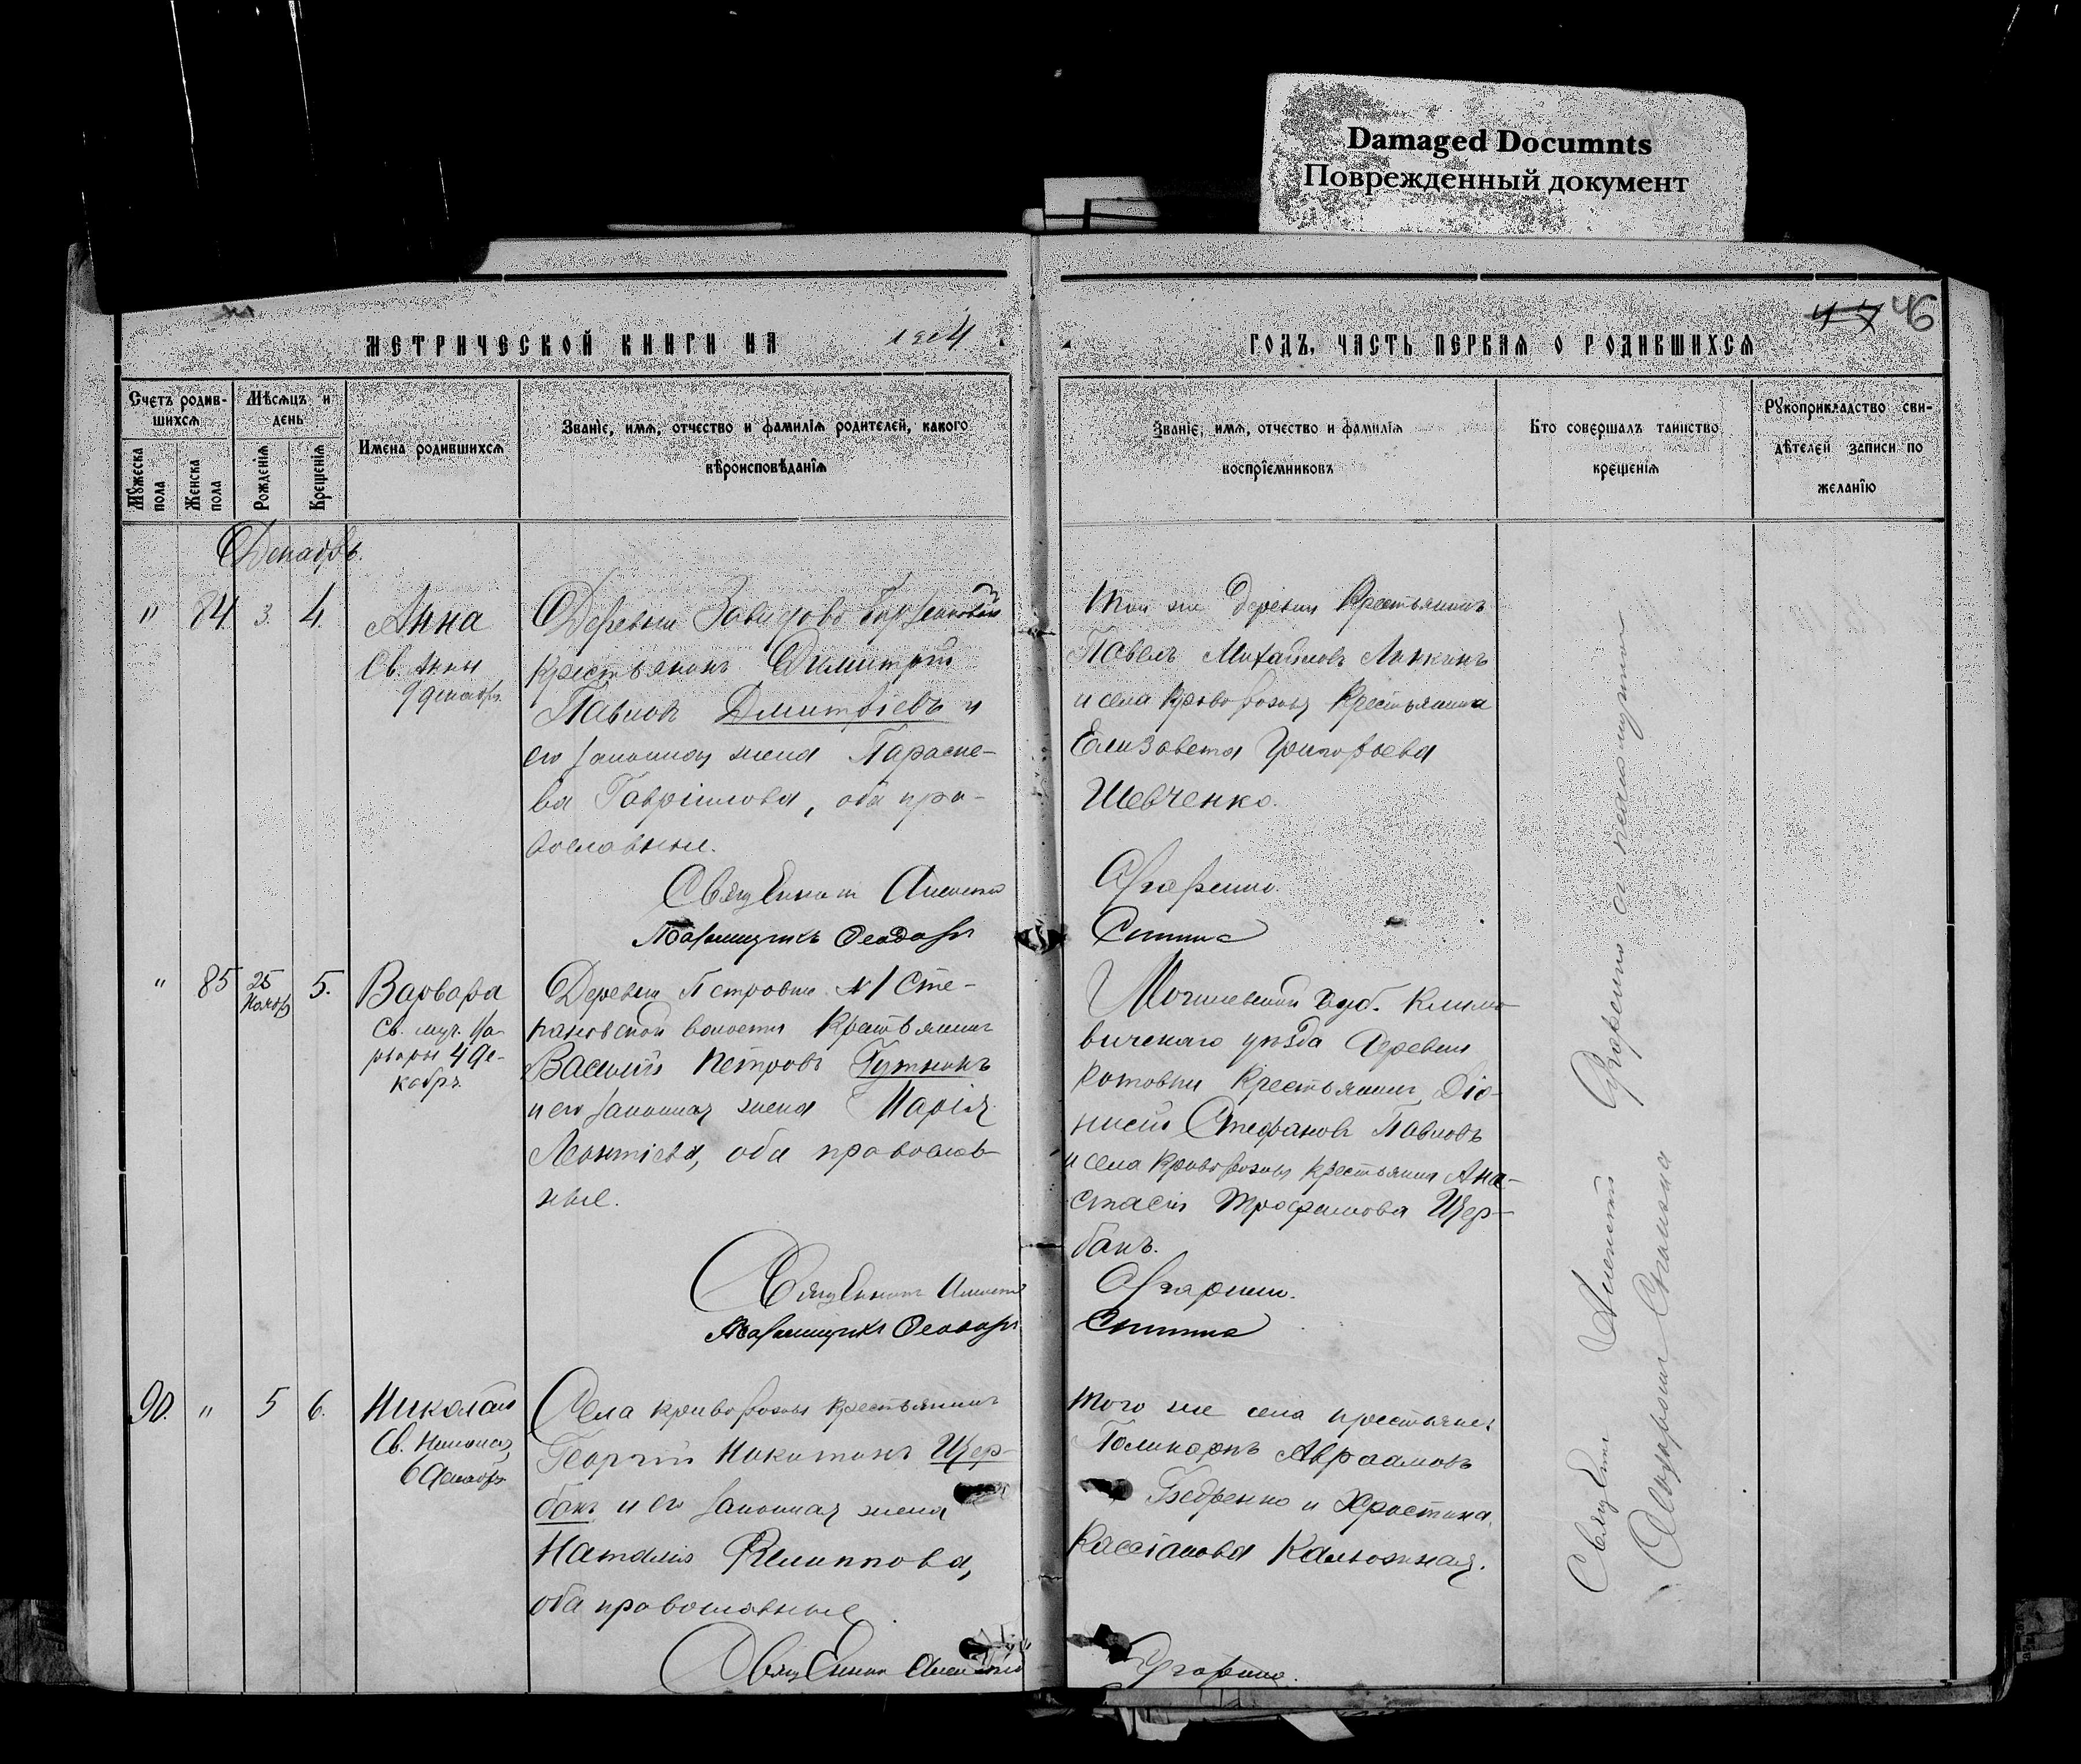 Damaged Documnts
Поврежденный документ
47 46
МЕТРИЧЕСКОЙ КНИГИ НА 1904
ГОДЪ, ЧАСТЬ ПЕРВАЯ О РОДИВШИХСЯ
Счетъ родив-
шихся
Мужеска
пола
Женска
пола
Мѣсяцъ и
день
Рожденія
Крещенія
Имена родившихся
Званіе, имя, отчество и фамилія родителей, какого
вѣроисповѣданія
Званіе, имя, отчество и фамилія
воспріемниковъ
Кто совершалъ таинство
крещенія
Рукоприкладство сви-
дѣтелей записи по
желанію
Декабрь.
" 84. 3. 4.
Анна
Св. Анны
9 декабря
Деревни Завидово
крестьянинъ Димитрій
Павловъ Дмитріевъ и
его законная жена Параске-
ва Гавріилова, оба пра-
вославные.
Священникъ Алексій
Псаломщикъ Ѳеодоръ
Той же деревни крестьянинъ
Павелъ Михайловъ Линкинъ
и села Криворожья крестьянка
Елизавета Григорьева
Шевченко.
" 85 25 Нояб. 5.
Варвара
Св. муч. Ва-
рвары 4 де-
кабря
Деревни Петровки № 1 Сте-
пановской волости крестьянинъ
Василій Петровъ Гутникъ
и его законная жена Марія
Леонтіева, оба православ-
ные.
Священникъ Алексій
Псаломщикъ Ѳеодоръ
Могилевской губ. Климо-
вичскаго уѣзда деревни
крестьянинъ Діо-
нисій Стефановъ Павловъ
и села Криворожья крестьянка Ана-
стасія Трофимова Щер-
бакъ.
90. " 5 6.
Николай
Св. Николая
6 декабря
Села Криворожья крестьянинъ
Георгій Никитинъ Щер-
бакъ и его законная жена
Наталія Филиппова,
оба православные
Священникъ Алексій
Того же села крестьяне:
Поликарпъ Авраамовъ
Бедренко и Христина
Кассіанова Калюжная.
Священникъ Алексій
съ псаломщикомъ